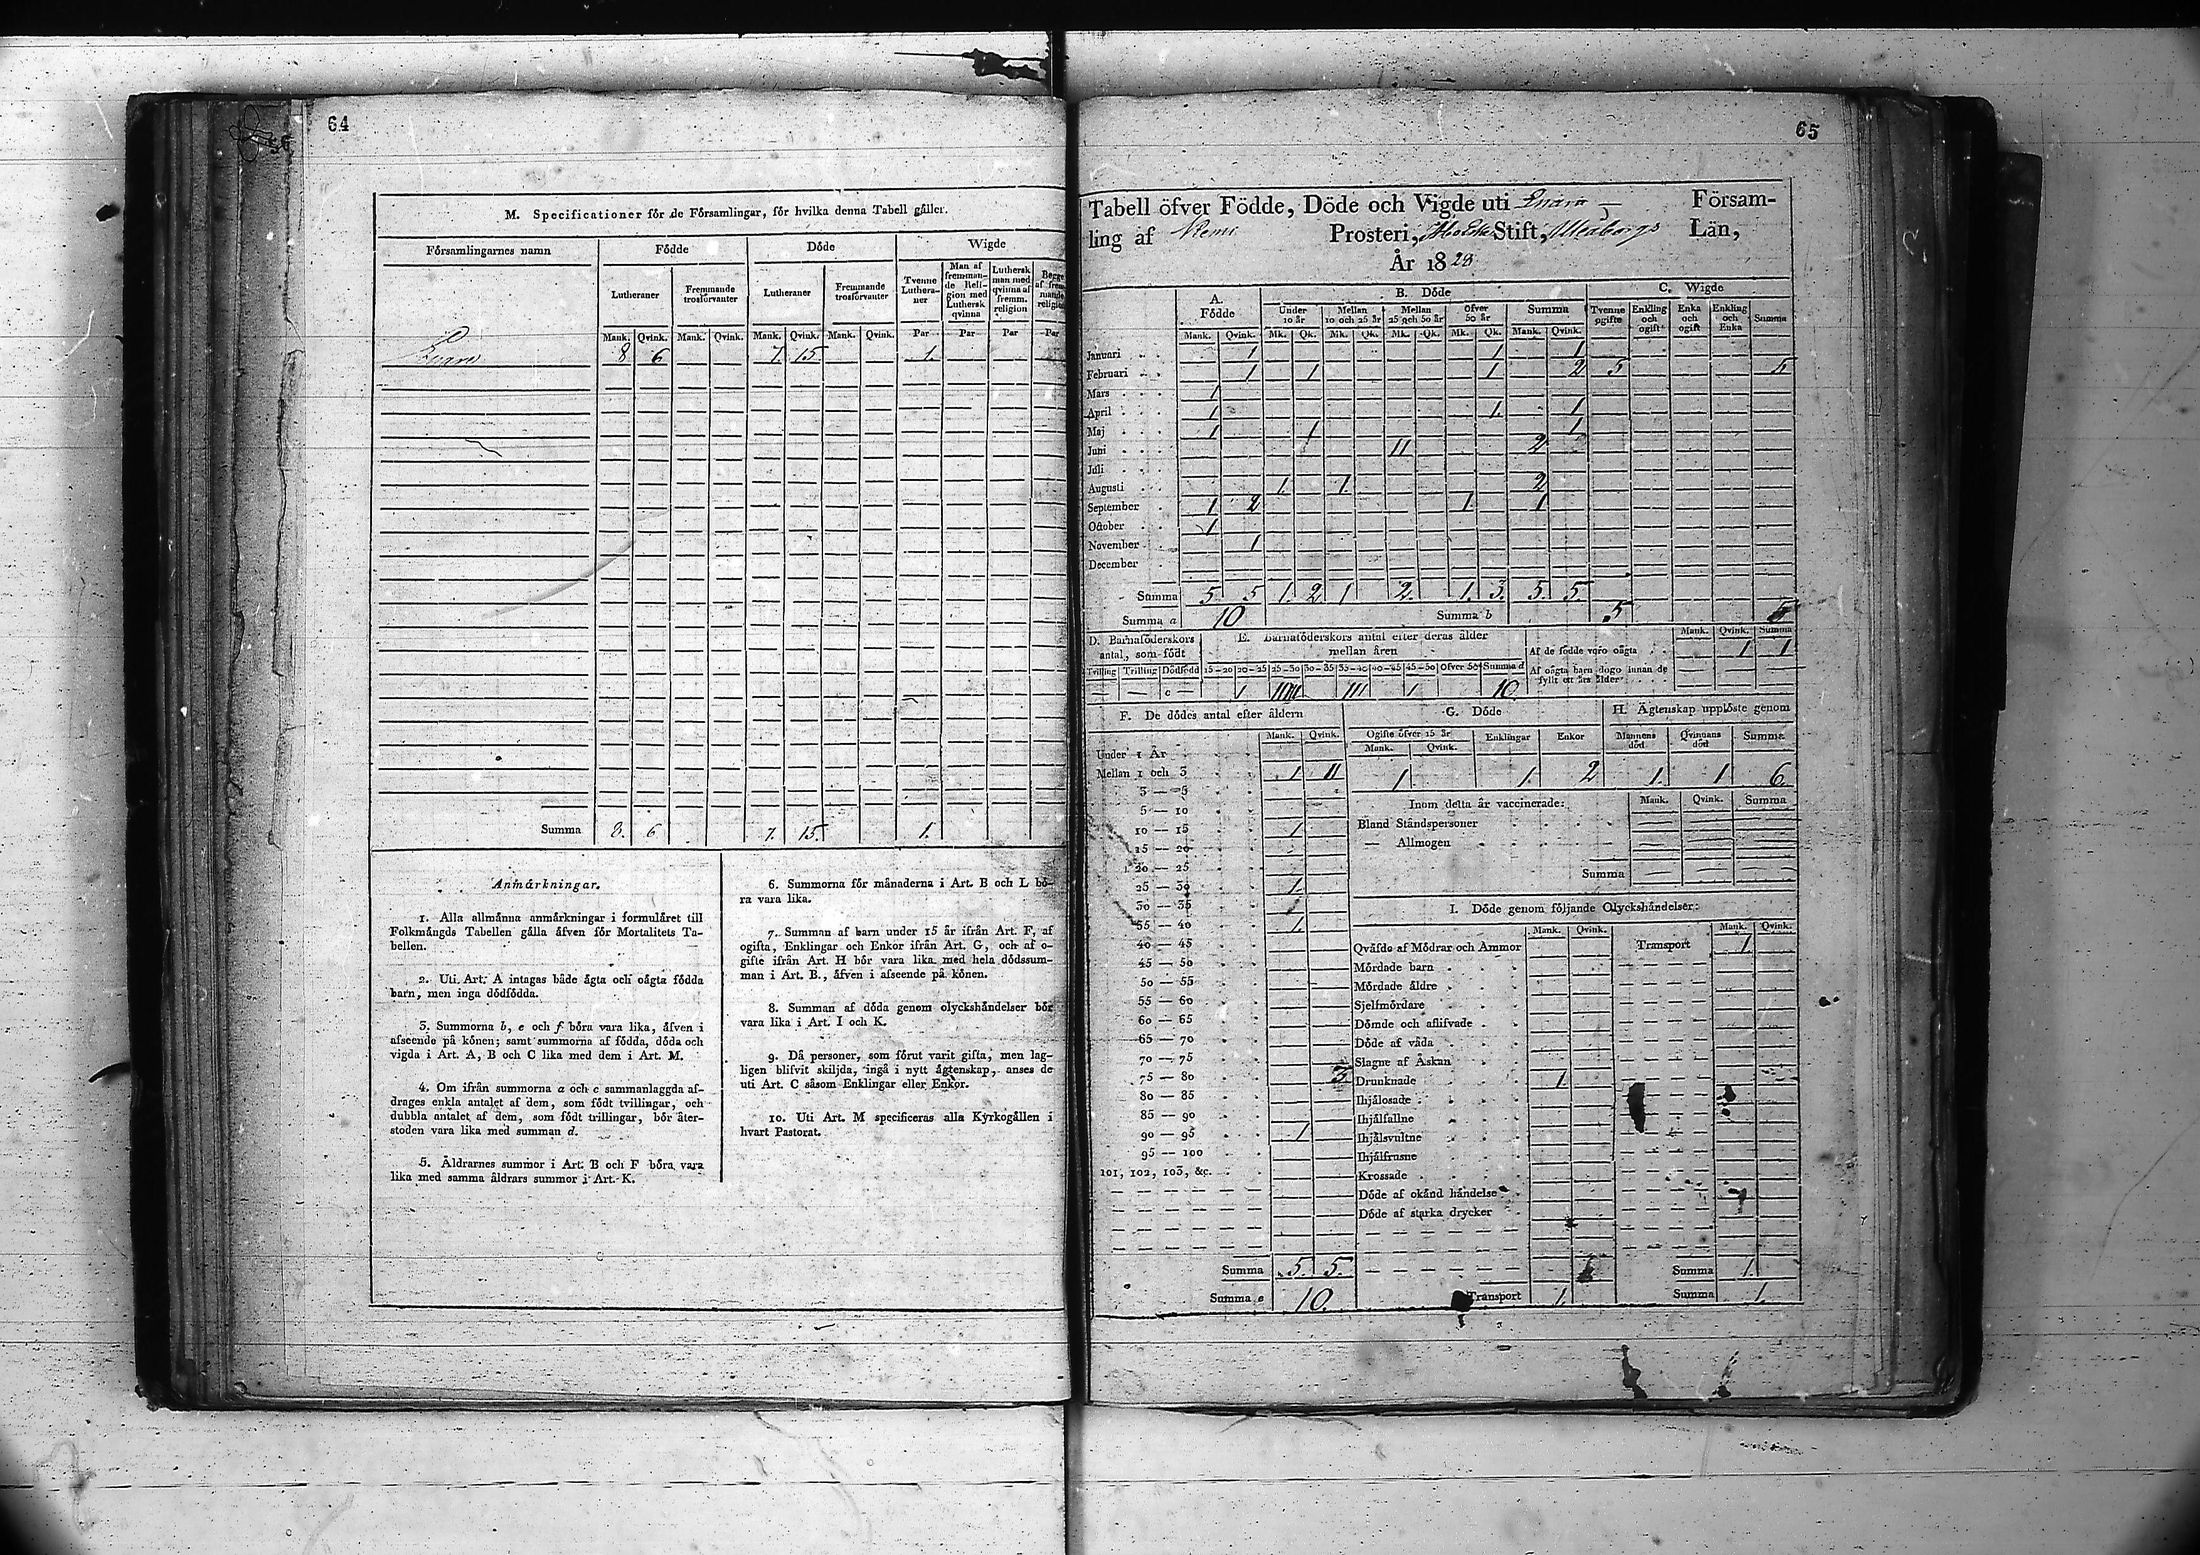 64
M. Specificationer fór de Fórsamlingar, fór hvilka denna Tabell gåller.
Fórsamlingarnes namn Fódde Dóde Wigde
Lutheraner Fremmande trosfórvanter Lutheraner Fremmande trosfórvanter Tvenne Lutheraner Man af fremmande Religion med Luthersk qvinna Luthersk man med qvinna af fremm. religion Begge af fremmande religion
Mank. Qvink. Mank. Qvink. Mank. Qvink. Mank. Qvink. Par Par Par Par
Enare 8 6 7. 15 1.
Summa 8. 6 7. 15. 1.
Anmårkningar.
1. Alla allmånna anmårkningar i formulåret till
Folkmångds Tabellen gålla åfven fór Mortalitets Ta-
bellen.
2. Uti Art. A intagas både ågta och oågta fódda
barn, men inga dódfódda.
3. Summorna b, e och f bóra vara lika, åfven i
afseende på kónen; samt summorna af fódda, dóda och
vigda i Art. A, B och C lika med dem i Art. M.
4. Om ifrån summorna a och c sammanlaggda af-
drages enkla antalet af dem, som fódt tvillingar, och
dubbla antalet af dem, som fódt trillingar, bór åter-
stoden vara lika med summan d.
5. Åldrarnes summor i Art. B och F bóra vara
lika med samma åldrars summor i Art. K.
6. Summorna fór månaderna i Art. B och L bó-
ra vara lika.
7. Summan af barn under 15 år ifrån Art. F, af
ogifta, Enklingar och Enkor ifrån Art. G, och af o-
gifte ifrån Art. H bór vara lika med hela dódssum-
man i Art. B., åfven i afseende på kónen.
8. Summan af dóda genom olyckshåndelser bór
vara lika i Art. I och K.
9. Då personer, som fórut varit gifta, men lag-
ligen blifvit skiljda, ingå i nytt ågtenskap, anses de
uti Art. C såsom Enklingar eller Enkor.
10. Uti Art. M specificeras alla Kyrkogållen i
hvart Pastorat.
65
Tabell öfver Födde, Döde och Vigde uti Enare Försam-
ling af Kemi Prosteri, Åbo Stift, Uleåborgs Län,
År 1828
A. Fódde B. Dóde C. Wigde
Under 10 år Mellan 10 och 25 år Mellan 25 och 50 år Öfver 50 år Summa Tvenne ogifte Enkling och ogift Enka och ogift Enkling och Enka Summa
Mank. Qvink. Mk. Qk. Mk. Qk. Mk. Qk. Mk. Qk. Mank. Qvink.
Januari 1 1 1
Februari 1 1 1 2 5 5
Mars 1
April 1 1. 1
Maj 1 1 1
Juni 11 2
Juli
Augusti 1. 1. 2
September 1 2 1. 1
October 1
November 1
December
Summa 5. 5 1. 2 1 2. 1. 3. 5. 5.
Summa a 10 Summa b 5 5
D. Barnafóderskors antal, som fódt E. Barnafóderskors antal efter deras ålder mellan åren Mank. Qvink. Summa
Af de fódde voro oågta 1 1
Af oågta barn dógo innan de fyllt ett års ålder
Tvilling Trilling Dódfódd 15—20 20—25 25—30 30—35 35—40 40—45 45—50 Öfver 50 Summa d
c 1 11111 111 1 10
F. De dódes antal efter åldern G. Dóde H. Ågtenskap upplóste genom
Mank. Qvink. Ogifte öfver 15 år Mank. Qvink. Enklingar Enkor Mannens dód Qvinnans dód Summa
Under 1 År
Mellan 1 och 3 1. 11 1 1. 2 1. 1 6.
3 — 5
5 — 10
10 — 15 1
15 — 20
20 — 25
25 — 30 1.
30 — 35
35 — 40 1.
40 — 45
45 — 50
50 — 55
55 — 60
60 — 65
65 — 70
70 — 75
75 — 80 3
80 — 85
85 — 90
90 — 95 1
95 — 100
101, 102, 103, &c.
Summa 5. 5.
Summa e 10.
Inom detta år vaccinerade: Mank. Qvink. Summa
Bland Ståndspersoner
— Allmogen
Summa
I. Dóde genom fóljande Olyckshåndelser:
Mank. Qvink. Mank. Qvink.
Qvåfde af Módrar och Ammor Transport 1
Mórdade barn
Mórdade åldre
Sjelfmórdare
Dómde och aflifvade
Dóde af våda
Slagne af Åskan
Drunknade 1.
Ihjålosade
Ihjålfallne
Ihjålsvultne
Ihjålfrusne
Krossade
Dóde af okånd håndelse
Dóde af starka drycker
Summa 1.
Transport 1. Summa 1.